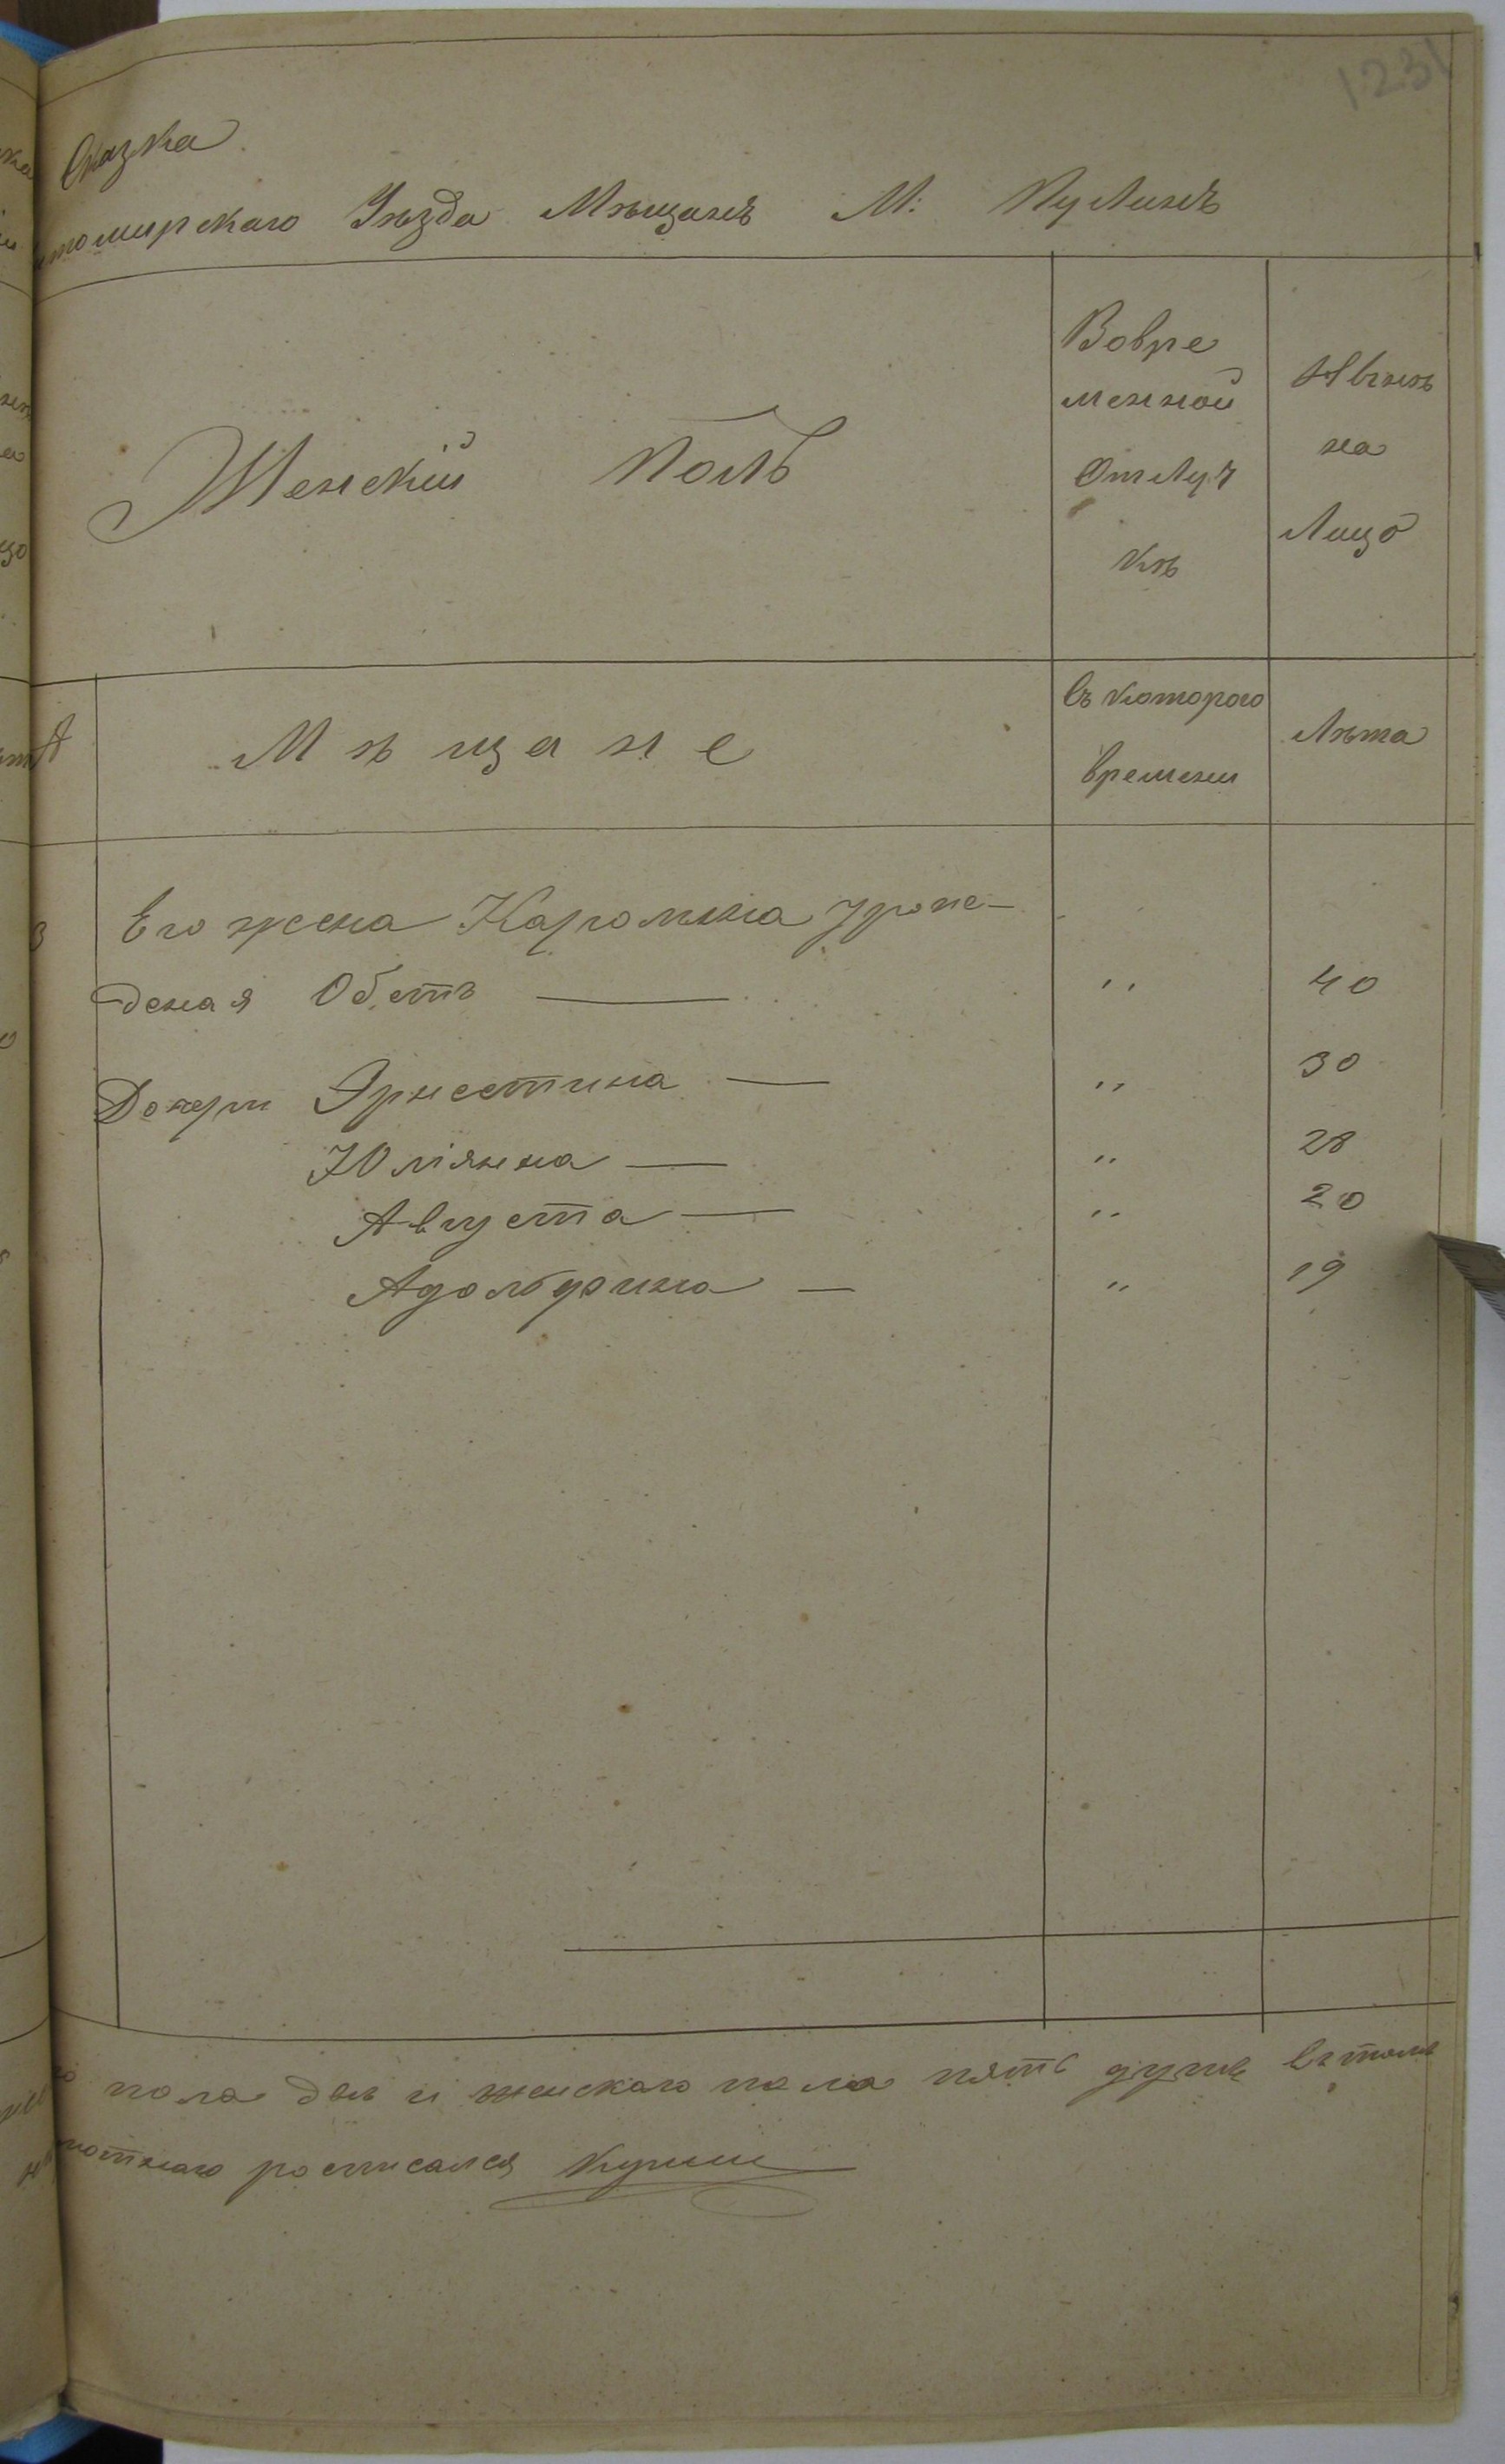 1231
Сказка
томирскаго Уѣзда Мѣщанъ М: Кулинъ
Женскій Полъ
Вовре
менной
Отлуч
кѣ
Нынѣ
на
Лицо
Мѣщане
Съ которого
времени
Лѣта
Его жена Каролина урože-
деная
40
Дочери Эрнестина — „ 30
Юліянна — „ 28
Августа — „ 20
Адольфина — „ 19
пола двѣ и женскаго пола пять душъ въ томъ
росписался